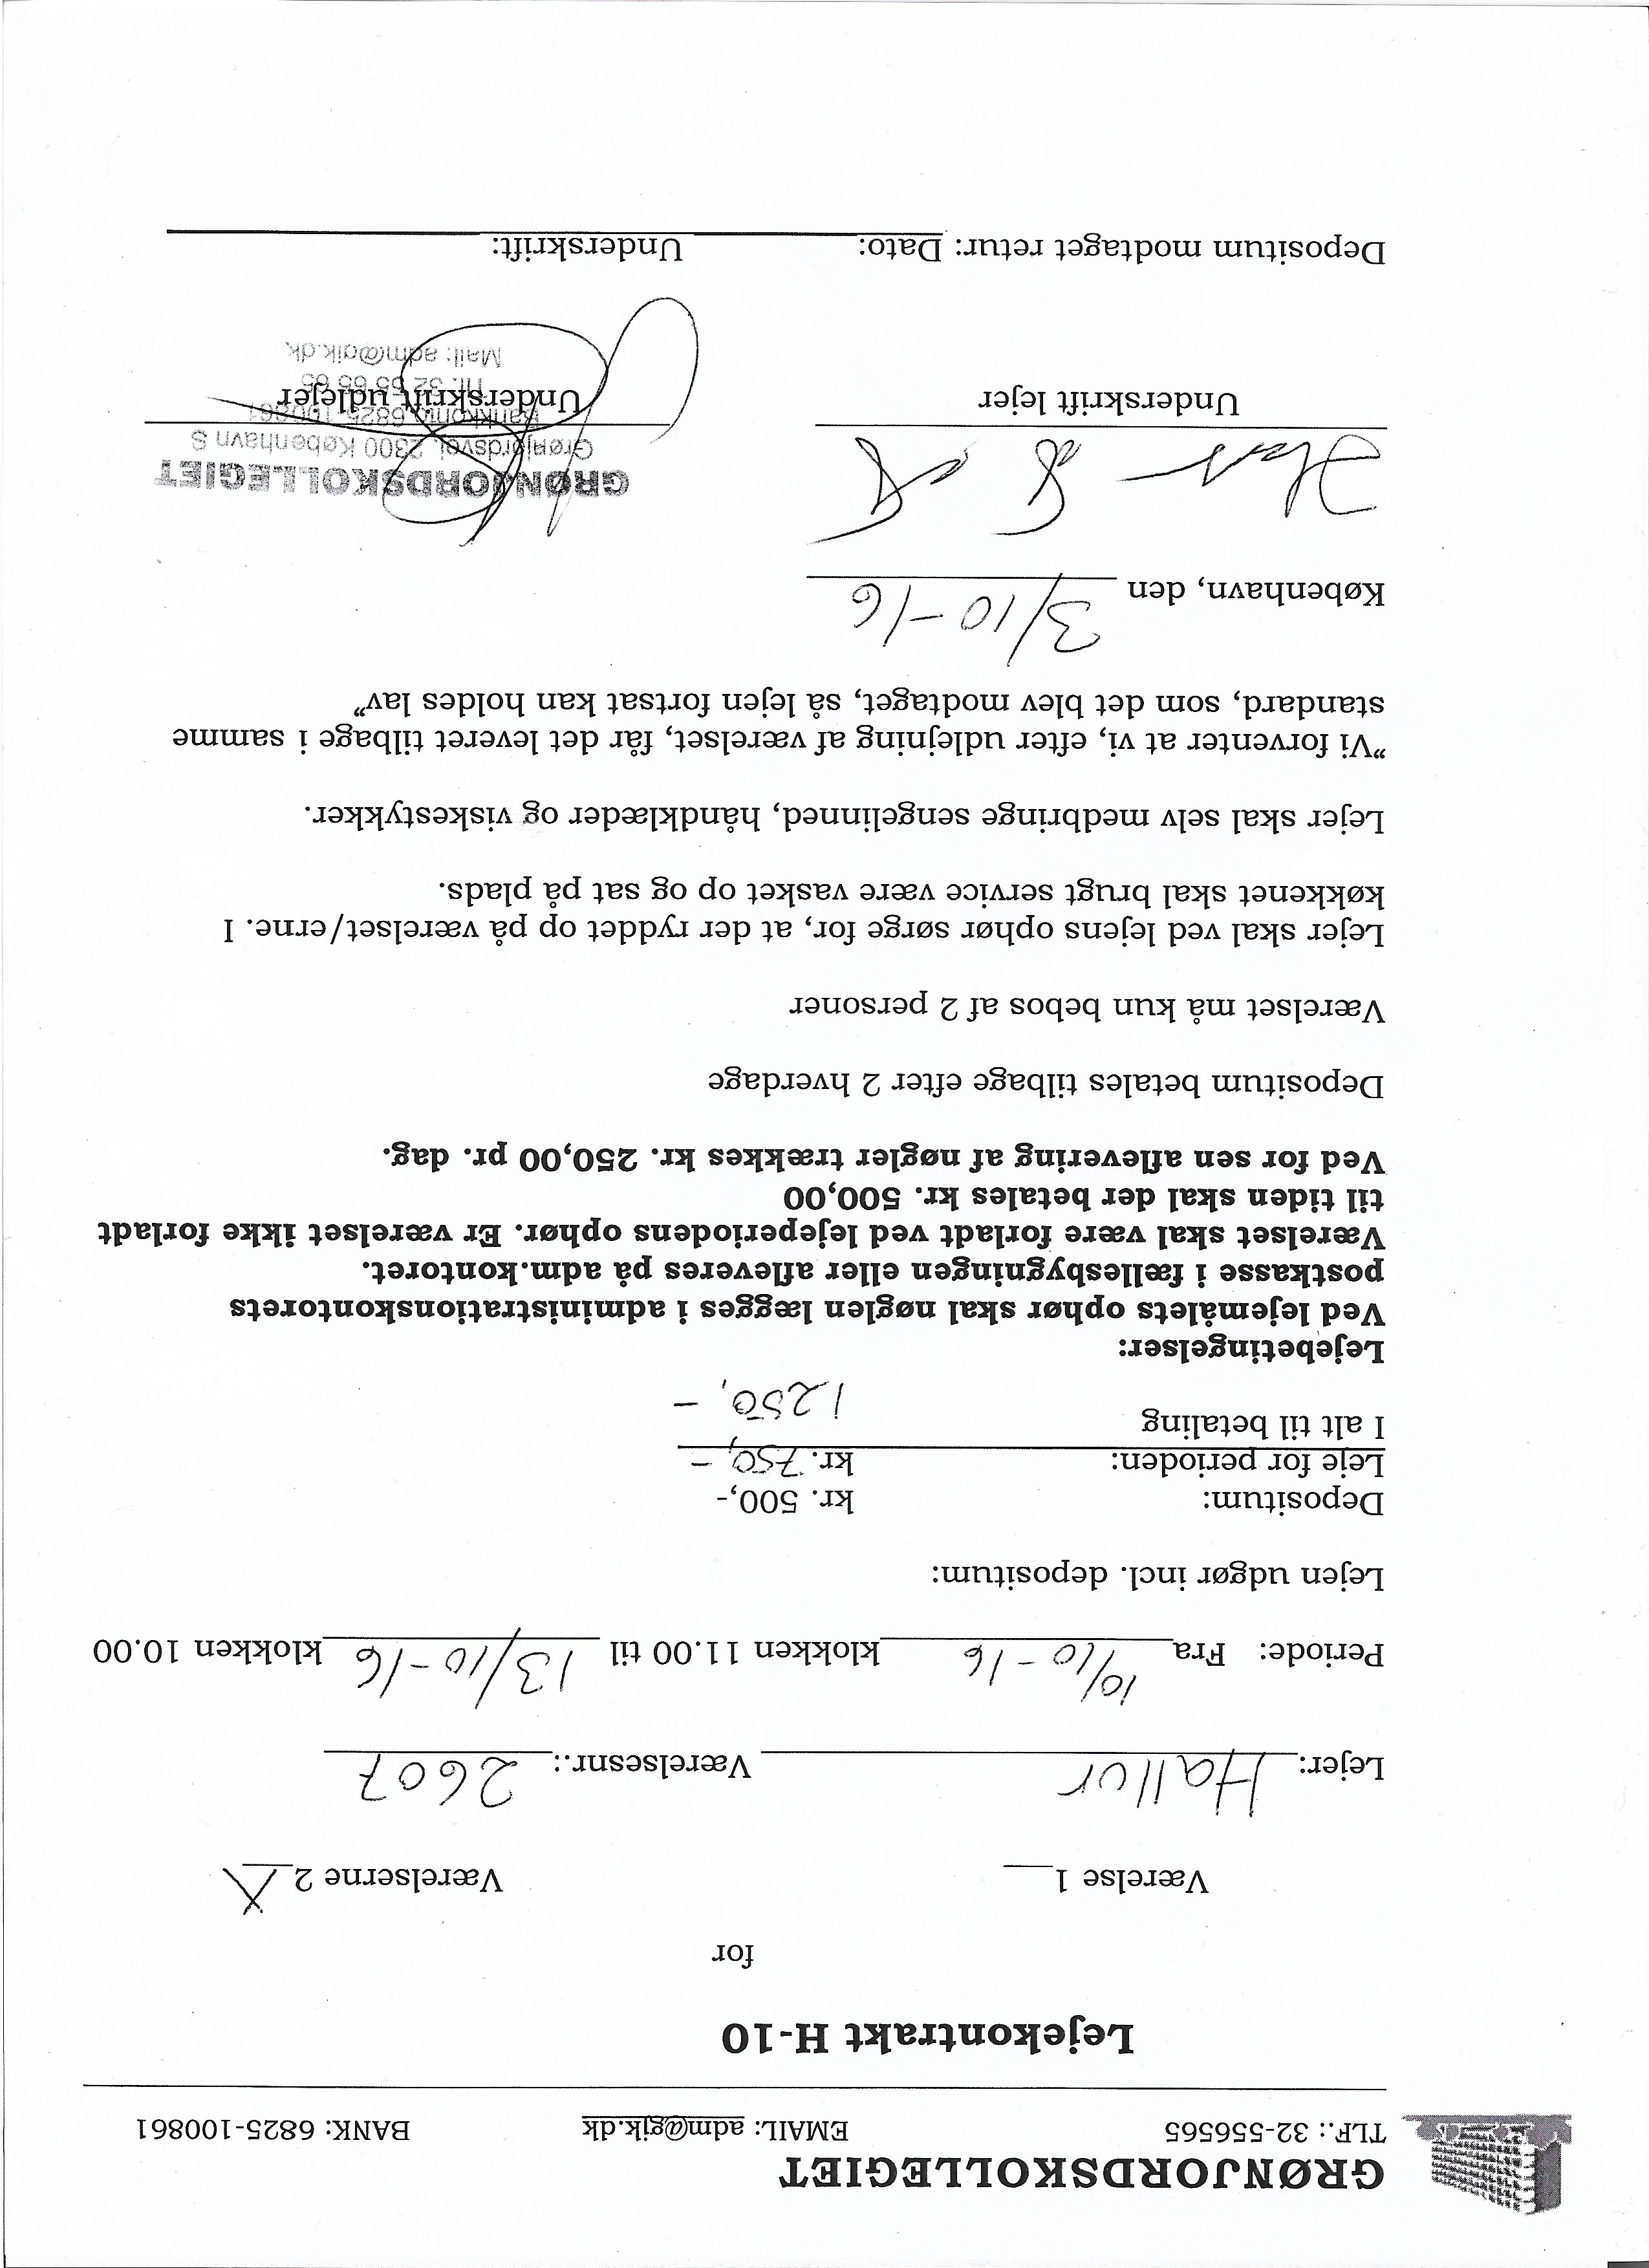 GRØNJORDSKOLLEGIET
TLF.: 32-556565 EMAIL: adm@gjk.dk BANK: 6825-100861
Lejekontrakt H-10
for
Værelse 1___ Værelserne 2 X
Lejer: Hallur Værelsesnr.: 2607
Periode: Fra 10/10-16 klokken 11.00 til 13/10-16 klokken 10.00
Lejen udgør incl. depositum:
Depositum: kr. 500,-
Leje for perioden: kr. 750,-
I alt til betaling 1250,-
Lejebetingelser:
Ved lejemålets ophør skal nøglen lægges i administrationskontorets
postkasse i fællesbygningen eller afleveres på adm.kontoret.
Værelset skal være forladt ved lejeperiodens ophør. Er værelset ikke forladt
til tiden skal der betales kr. 500,00
Ved for sen aflevering af nøgler trækkes kr. 250,00 pr. dag.
Depositum betales tilbage efter 2 hverdage
Værelset må kun bebos af 2 personer
Lejer skal ved lejens ophør sørge for, at der ryddet op på værelset/erne. I
køkkenet skal brugt service være vasket op og sat på plads.
Lejer skal selv medbringe sengelinned, håndklæder og viskestykker.
”Vi forventer at vi, efter udlejning af værelset, får det leveret tilbage i samme
standard, som det blev modtaget, så lejen fortsat kan holdes lav”
København, den 3/10-16
GRØNJORDSKOLLEGIET
Grønjordsvej, 2300 København S
Bankkonto 6825-100861
Underskrift lejer Underskrift udlejer
Tlf. 32 55 65 65
Mail: adm@gjk.dk
Depositum modtaget retur: Dato: Underskrift: